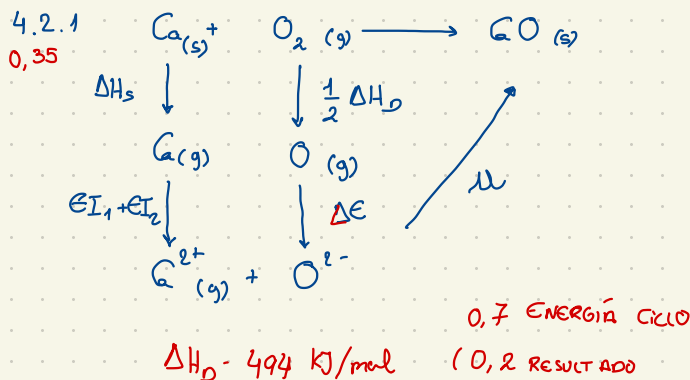 4.2.1 Ca(s) + O₂ (g) → CaO (s)
0,35
ΔHs ½ ΔH_D
Ca(g) O (g)
EI₁ + EI₂ ΔE U
Ca²⁺ (g) + O²⁻
0,7 ENERGÍA CICLO
ΔH_D - 494 KJ/mol (0,2 RESULTADO